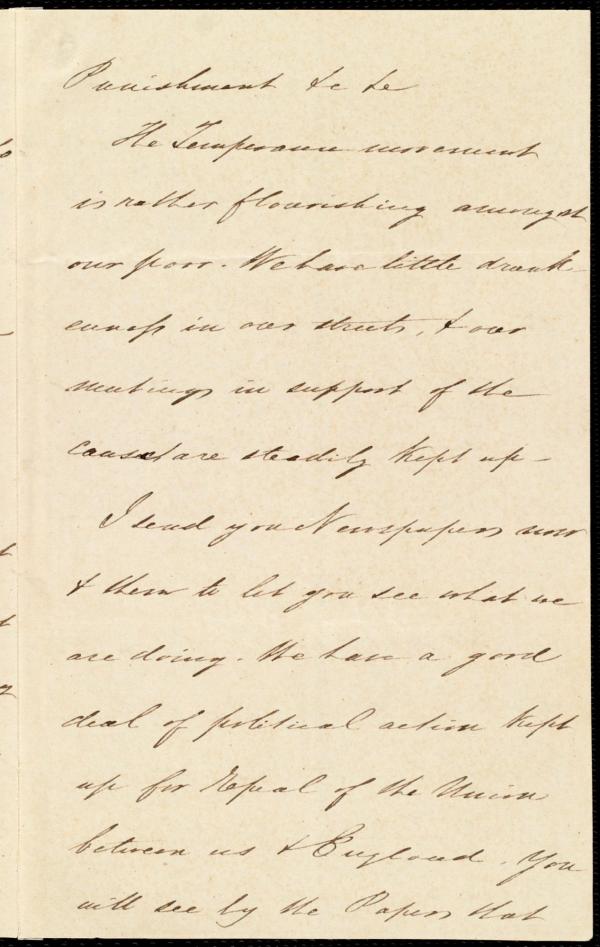 Punishment &c &c
The Temperance movement
is rather flourishing amongst
our poor. We have little drunk-
enness in our streets, & our
meetings in support of the
cause are steadily kept up -
I send you Newspapers now
& then to let you see what we
are doing. We have a good
deal of political action kept
up for Repeal of the Union
between us & England. You
will see by the Papers that